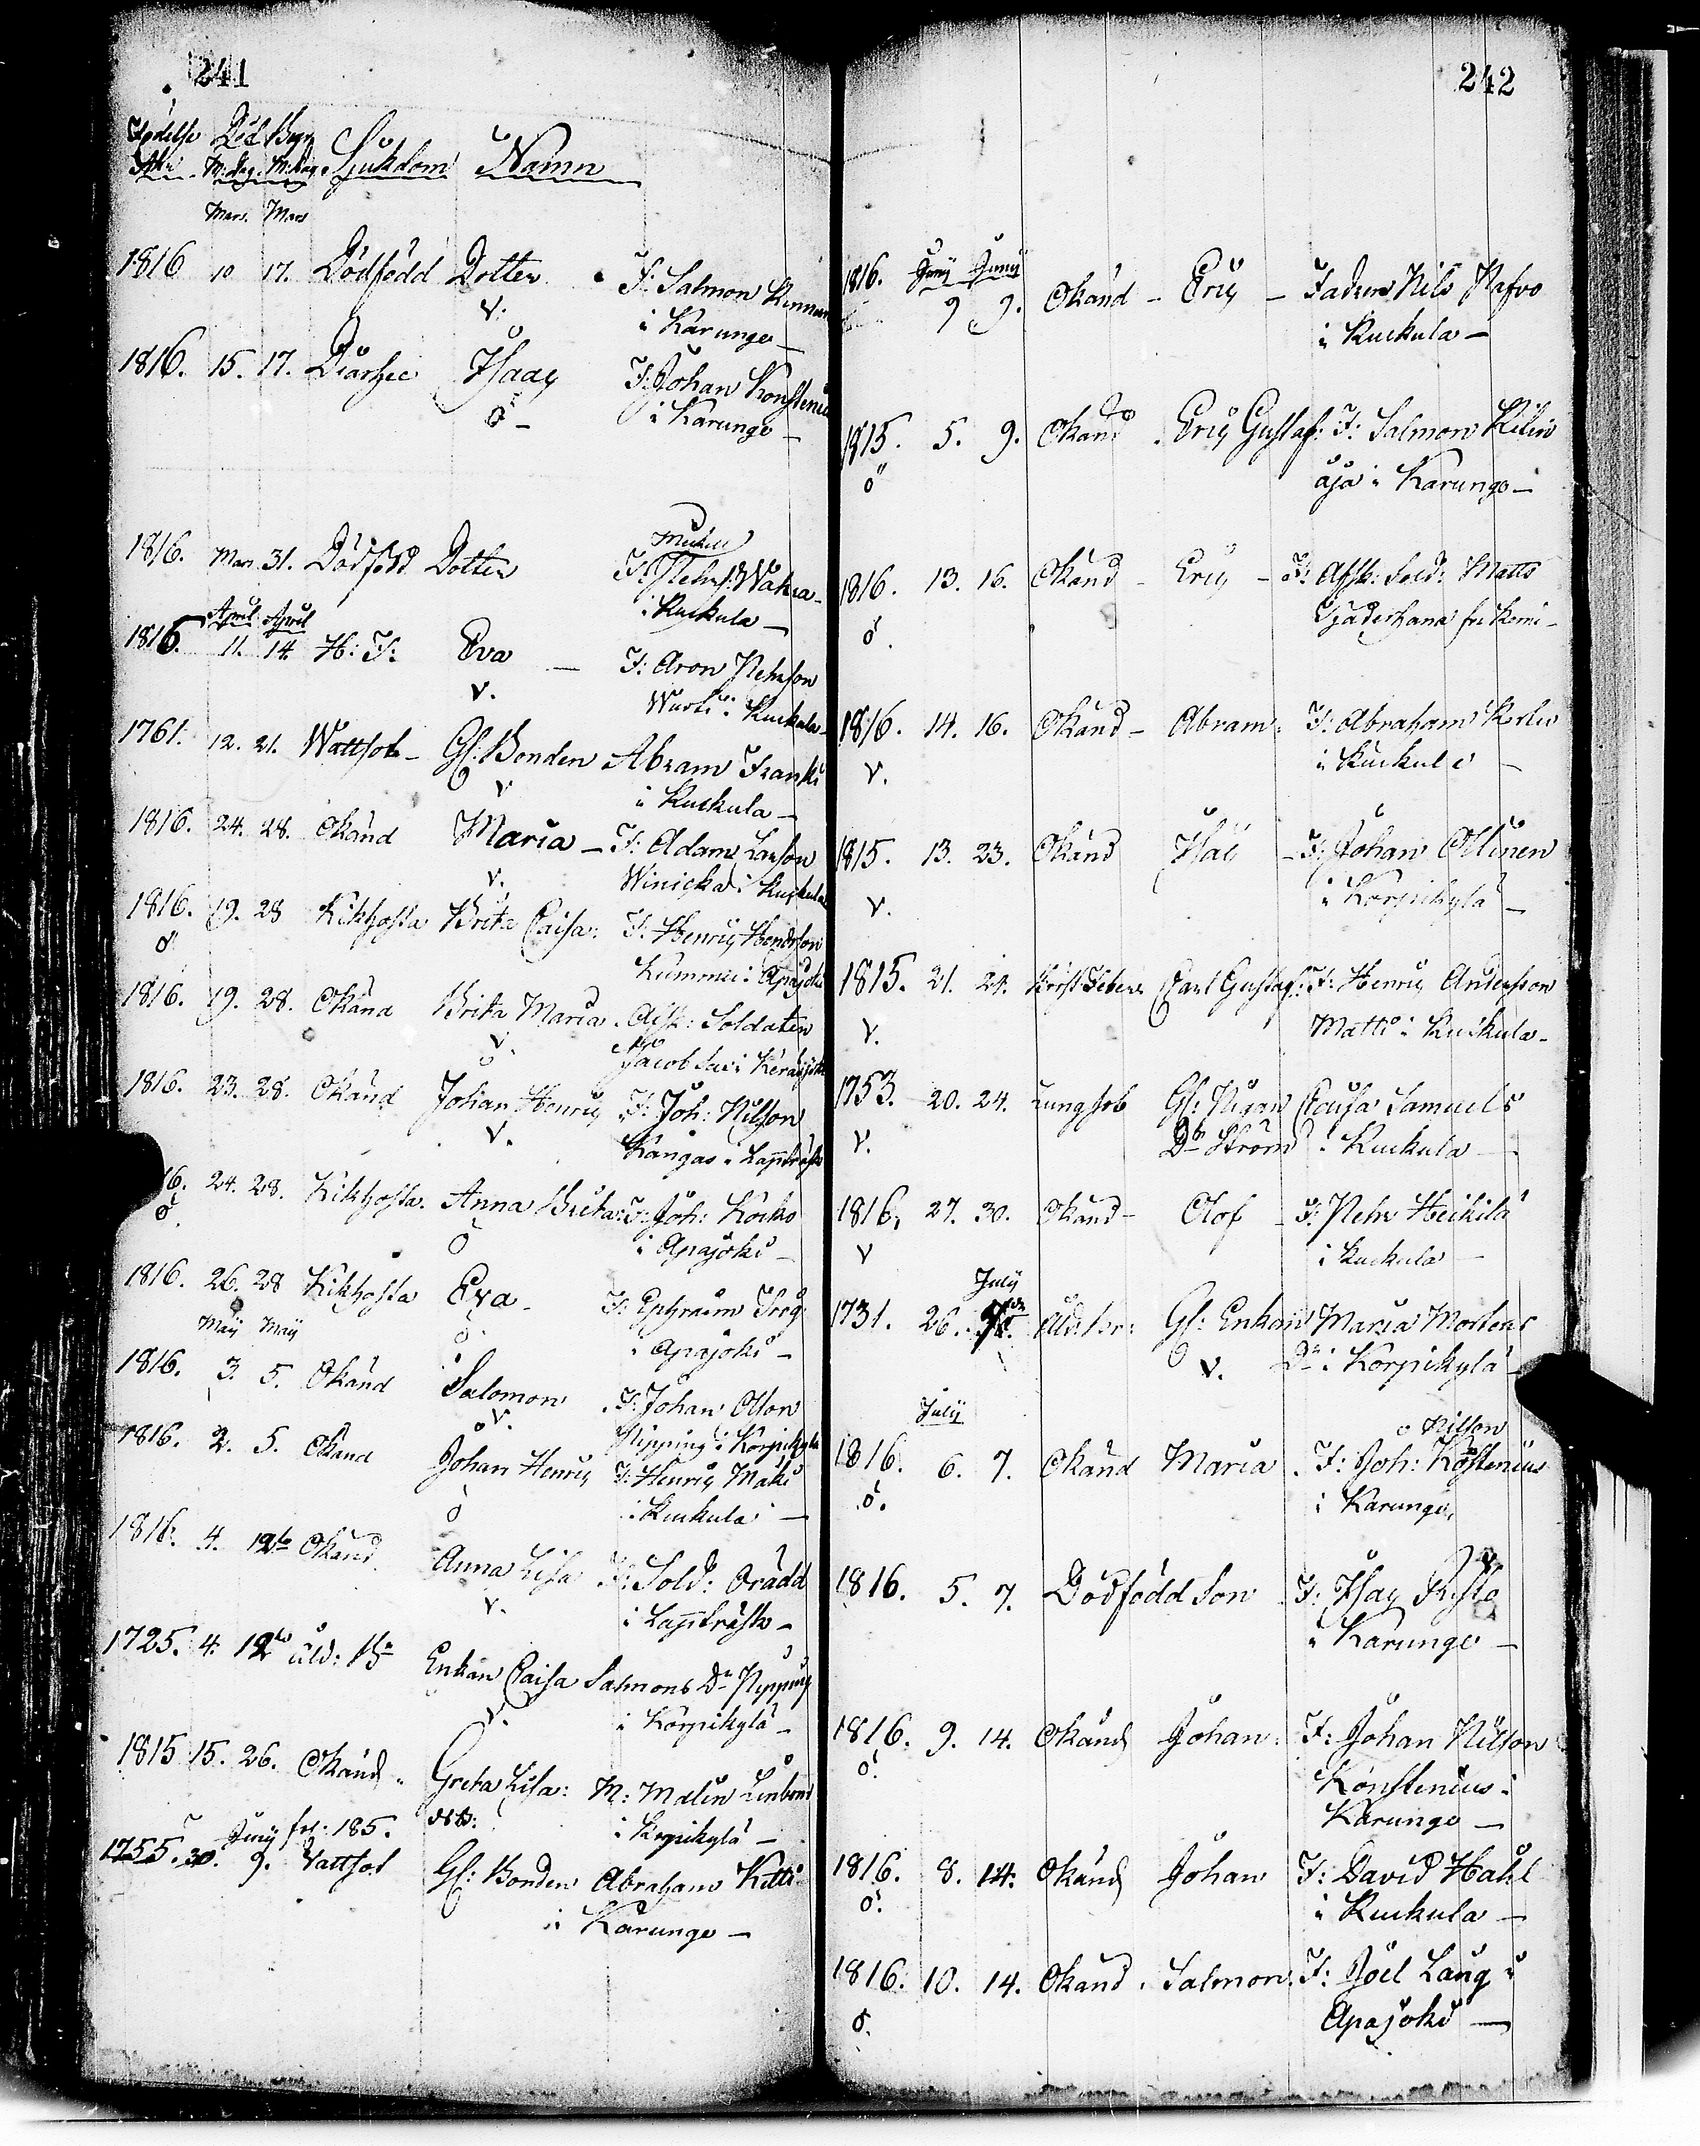 241
Födelse Död Begr
Åhr M: Dag. M: Dag. Sjukdom Namn
Mars. Mars
1816 10 17. Dödfödd Dotter F: Salmon
V. i Karungo —
1816. 15. 17. Diarhee Isaac F: Johan Konstenius
ö — i Karungo —
Mickell
1816. Mars 31. Dödfödd Dotter F:
i Kuckula —
April April
1816. 11. 14. H: F: Eva — F: Aron Pehrson
V. i Kuckula —
1761. 12. 21. Wattsot — Gl: Bonden Abram Franki
V i Kuckula —
1816. 24. 28. Okänd Maria — F: Adam Larson
V. Winicka i Kuckula
1816. 19. 28 Kikhosta Brita Caisa: F: Henric Hendrson
ö Kummu i Apajoki
1816. 19. 28. Okänd Brita Maria. Afsk: Soldaten
V. Jacob
1816. 23. 28. Okänd Johan Henric F: Joh: Nilson
V. Kangas i Lappträsk
16. 24. 28. Kikhosta. Anna Brita: F: Joh: Koiko
ö. ö i Apajoki —
1816. 26. 28 Kikhosta Eva. F: Ephraim
Maij Maij ö i Apajoki —
1816. 3. 5. Okänd Salomon F: Johan Olson
V. Nipping i Korpikylä
1816. 2. 5. Okänd Johan Henric F: Henric Mäki
ö i Kuckula —
1816. 4. 12te Okänd Anna Lisa F: Sold: Orädd
V. i Lappträsk —
1725. 4. 12te Enkan Caisa Salmons Dr Nipping
V. i Korpikylä —
1815 15. 26. Okänd. Greta Lisa: M: Malin
Junij fol: 185. i Korpikylä —
1755. 30. 9. Vattsot Gl: Bonden Abraham Kitti
i Karungo —
242
1816. Junij Junij
9 9. Okänd — Eric — Fadren Nils Nafvo
i Kuckula —
1815. 5. 9. Okänd. Eric Gustaf: F: Salmon
ö i Karungo —
1816. 13. 16. Okänd — Eric — F: Afsk: Sold: Matts
ö.
1816. 14. 16. Okänd — Abram: F: Abraham
V. i Kuckula —
1815. 13. 23. Okänd — F: Johan Ollinen
V. i Korpikylä —
1815. 21. 24. Carl Gustaf: F: Henric Andersson
V. Matti i Kuckula —
1753. 20. 24. Lungsot Gl: Pigan Caisa Samuels
V. Dr Ström i Kuckula —
1816. 27. 30. Okänd — Olof — F: Pehr Heikilä
V i Kuckula —
Julij
1731. 26. Gl: Enkan Maria Mortens
V. Dr i Korpikylä —
Julij
Nilson
1816. 6. 7. Okänd Maria. F: Joh: Konstenius
ö. i Karungo.
1816. 5. 7. Dödfödd Son F: Isac Risto
i Karungo —
1816. 9. 14. Okänd Johan. F: Johan Nilson
ö. Konstenius i
Karungo —
1816. 8. 14. Okänd Johan F: David Hahl
ö. i Kuckula —
1816. 10. 14. Okänd. Salmon. F: Joel Lång i
ö. Apajoki —